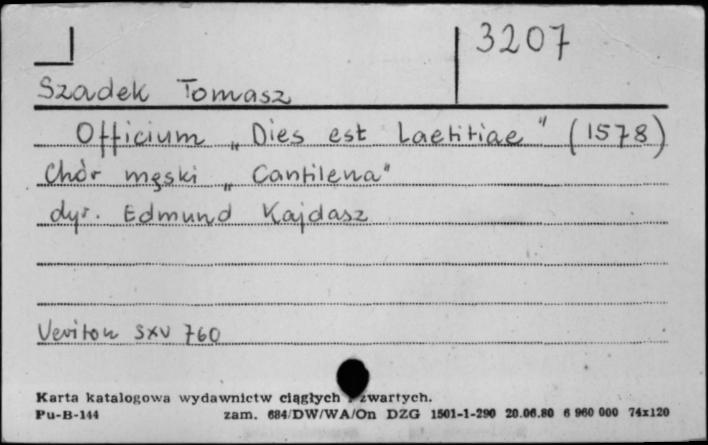 3207
Szadek Tomasz
Officium „Dies est Laetitiae" (1578)
Chór męski „Cantilena"
dyr. Edmund Kajdasz
Veriton SXV 760
Karta katalogowa wydawnictw ciągłych i zwartych.
Pu-B-144 zam. 684/DW/WA/On DZG 1501-1-290 20.06.80 6 960 000 74x120